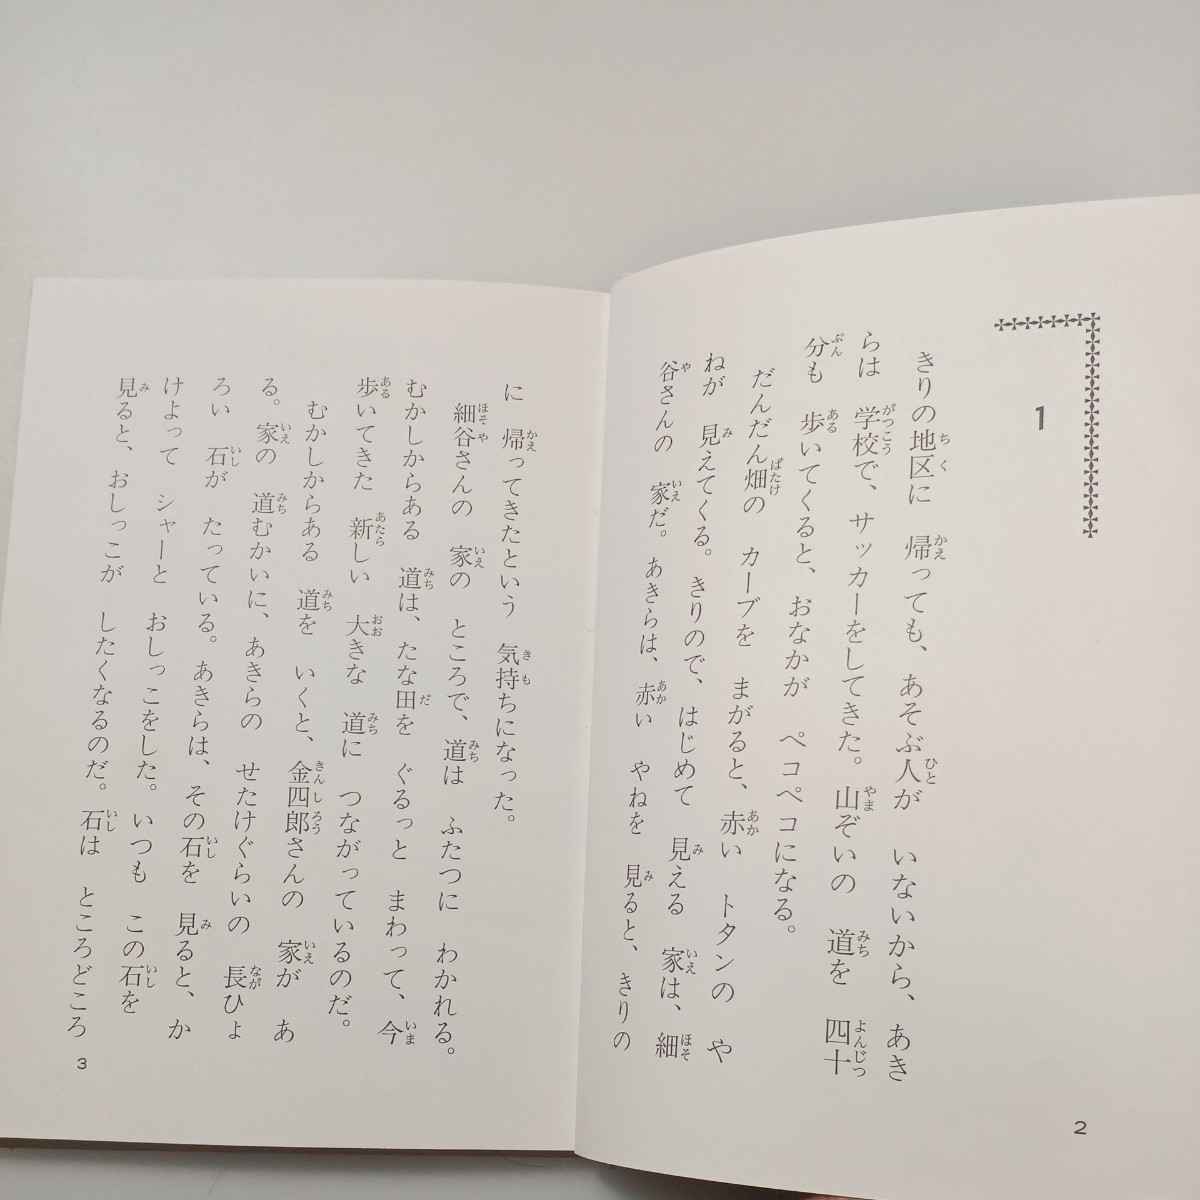 1
きりの地区に　帰っても、あそぶ人が　いないから、あき
らは　学校で、サッカーをしてきた。山ぞいの　道を　四十
分も　歩いてくると、おなかが　ペコペコになる。
だんだん畑の　カーブを　まがると、赤い　トタンの　や
ねが　見えてくる。きりので、はじめて　見える　家は、細
谷さんの　家だ。あきらは、赤い　やねを　見ると、きりの
2
に　帰ってきたという　気持ちになった。
細谷さんの　家の　ところで、道は　ふたつに　わかれる。
むかしからある　道は、たな田を　ぐるっと　まわって、今
歩いてきた　新しい　大きな　道に　つながっているのだ。
むかしからある　道を　いくと、金四郎さんの　家が　あ
る。家の　道むかいに、あきらの　せたけぐらいの　長ひょ
ろい　石が　たっている。あきらは、その石を　見ると、か
けよって　シャーと　おしっこをした。いつも　この石を
見ると、おしっこが　したくなるのだ。石は　ところどころ
3